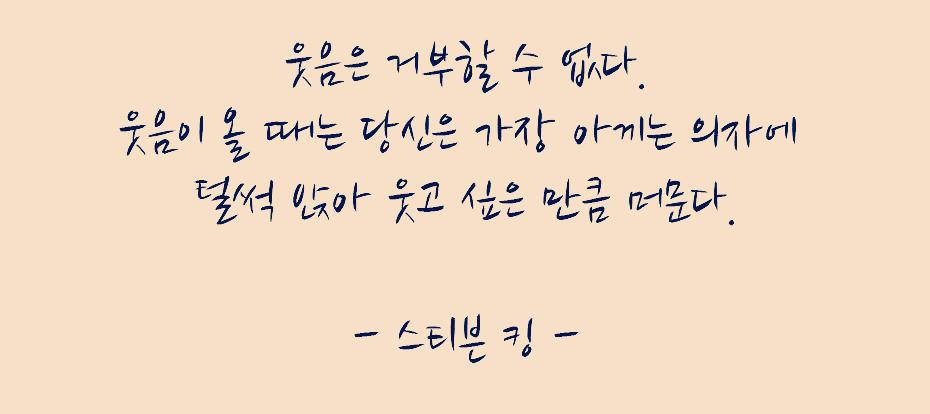 웃음은 거부할 수 없다.
웃음이 올 때는 당신은 가장 아끼는 의자에
털썩 앉아 웃고 싶은 만큼 머문다.
- 스티븐 킹 -